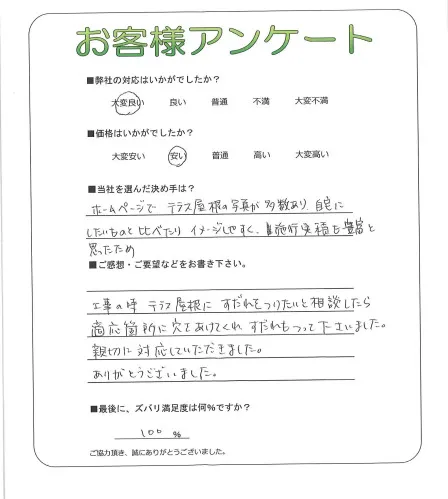 お客様アンケート
■弊社の対応はいかがでしたか?
大変良い 良い 普通 不満 大変不満
■価格はいかがでしたか?
大変安い 安い 普通 高い 大変高い
■当社を選んだ決め手は?
ホームページで テラス屋根の写真が多数あり 自宅に
したいものと比べたり イメージしやすく、施行実積も豊富と
思ったため
■ご感想・ご要望などをお書き下さい。
工事の時 テラス屋根に すだれをつりたいと相談したら
適応箇所に穴をあけてくれ すだれもつって下さいました。
親切に対応していただきました。
ありがとうございました。
■最後に、ズバリ満足度は何%ですか?
100 %
ご協力頂き、誠にありがとうございました。